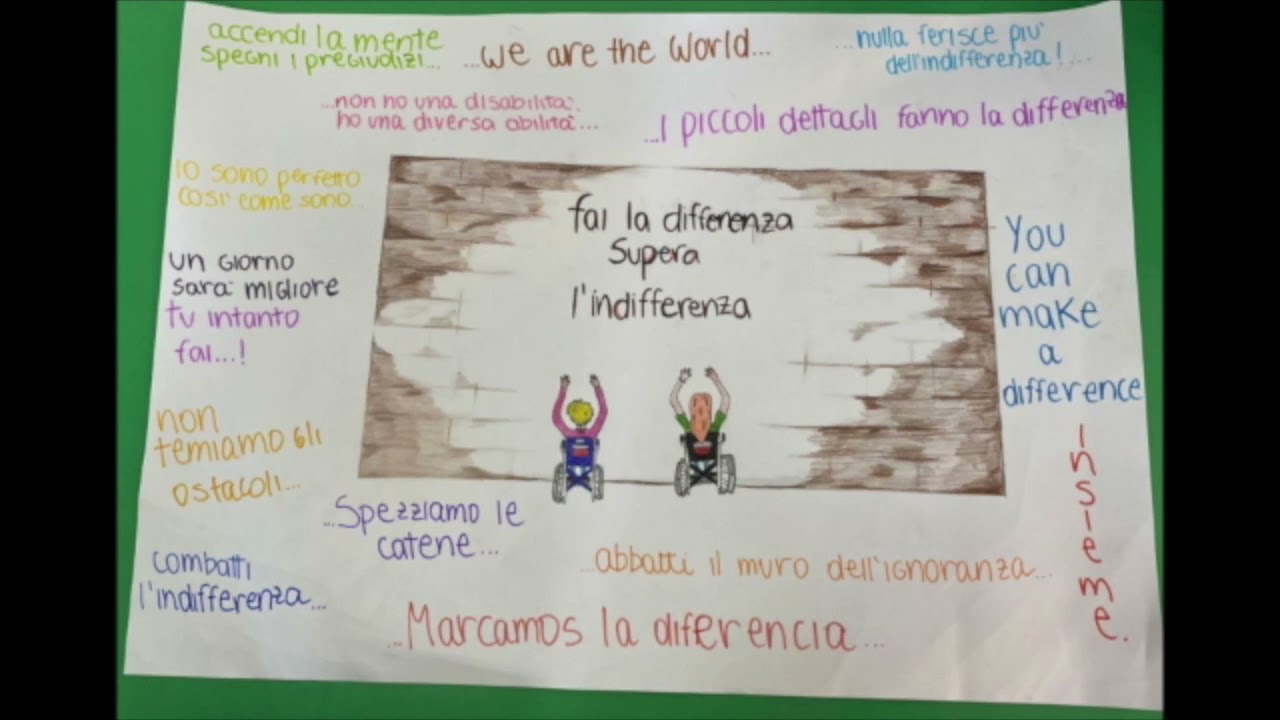 accendi la mente
spegni i pregiudizi...
...we are the world...
...nulla ferisce piu'
dell'indifferenza!...
...non ho una disabilità
ho una diversa abilità...
...i piccoli dettagli fanno la differenza
Io sono perfetto
così come sono...
fai la differenza
Supera
l'indifferenza
un giorno
sarà migliore
tu intanto
fai...!
You
can
make
a
difference
non
temiamo gli
ostacoli...
insieme.
...Spezziamo le
catene...
combatti
l'indifferenza...
...abbatti il muro dell'ignoranza...
...Marcamos la diferencia...